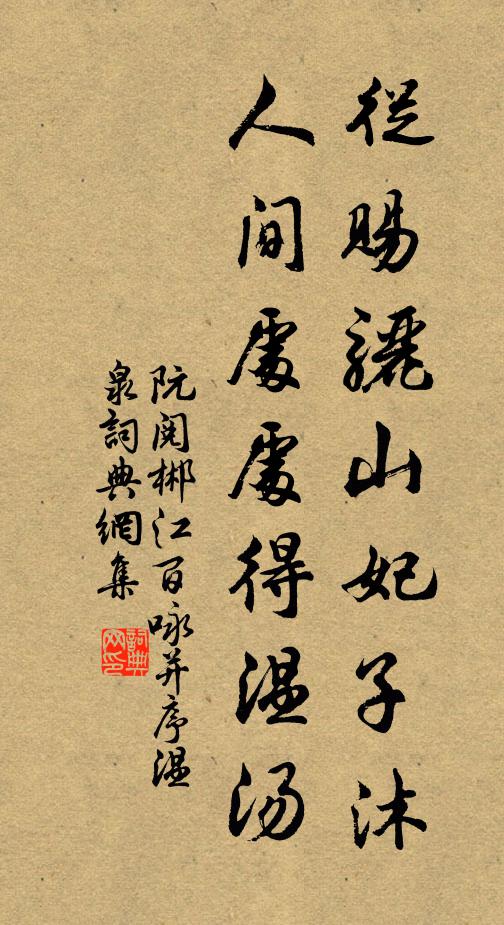 從賜驪山妃子沐
人間處處得溫湯
阮閱郴江百咏并序溫
泉詞典網集
詞典
网印